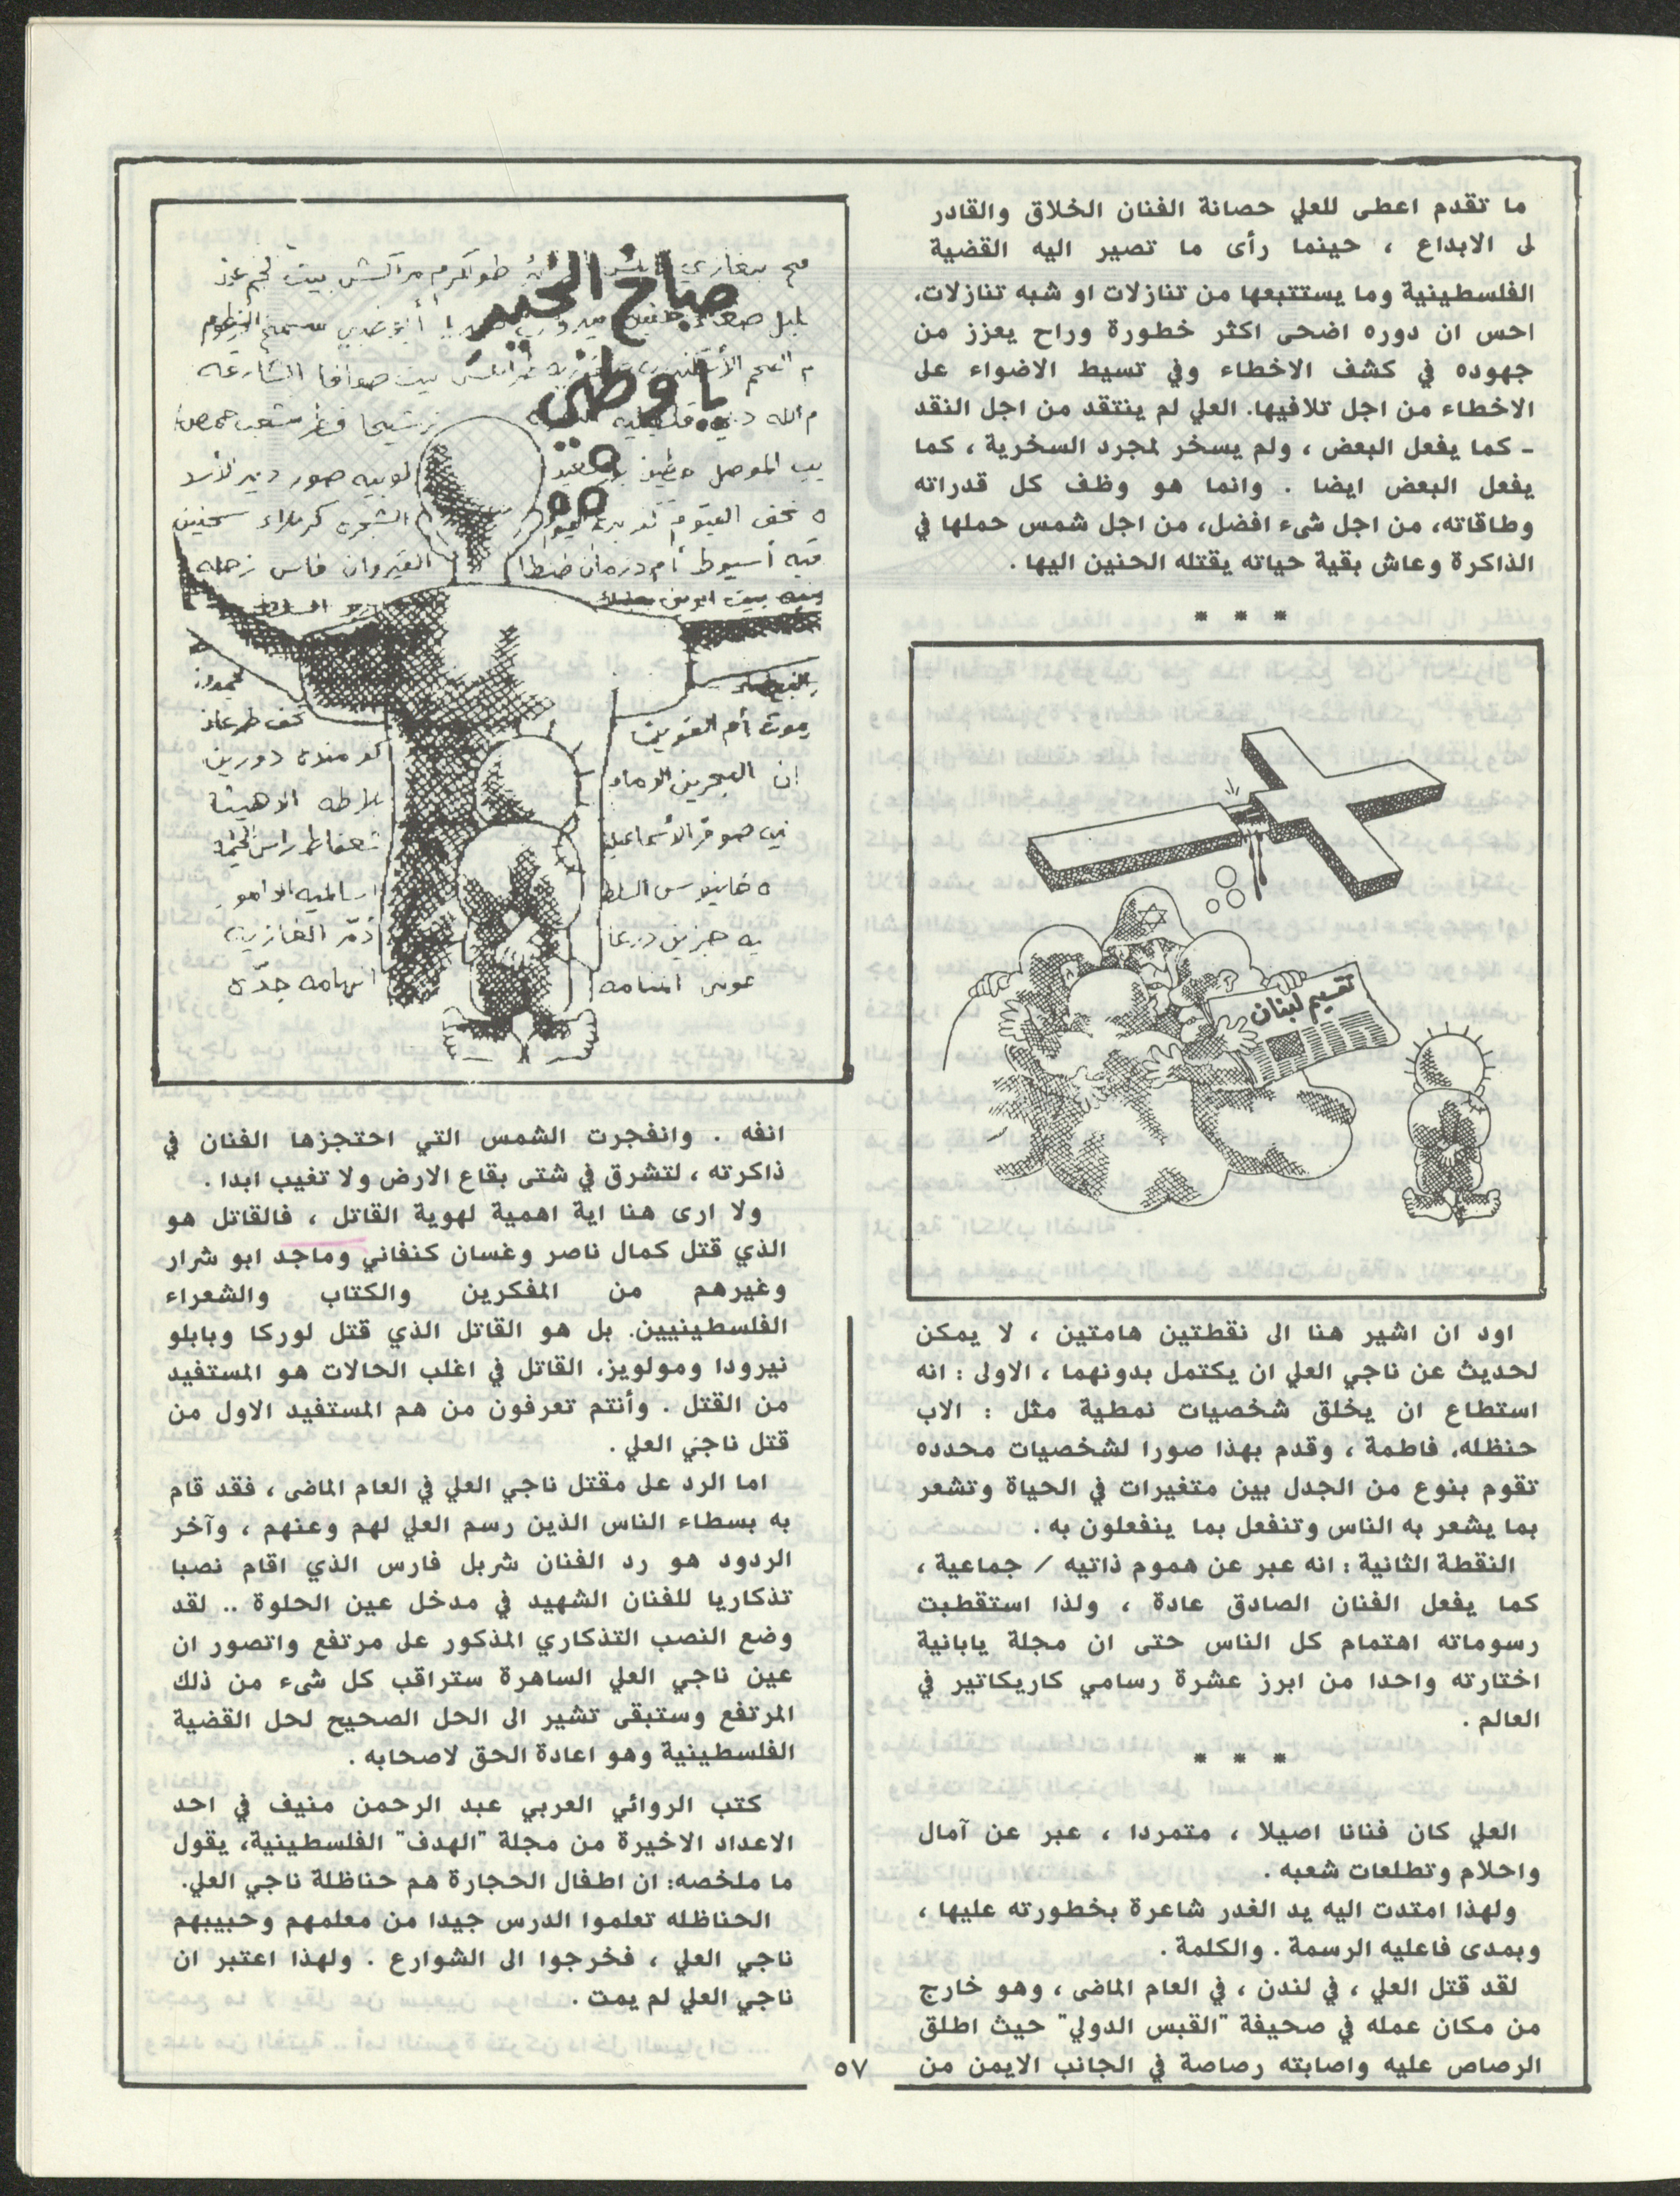 ما تقدم اعطى للعلي حصانة الفنان الخلاق والقادر
لى الابداع ، حينما رأى ما تصير اليه القضية
الفلسطينية وما يستتبعها من تنازلات او شبه تنازلات،
احس ان دوره اضحى اكثر خطورة وراح يعزز من
جهوده في كشف الاخطاء وفي تسيط الاضواء على
الاخطاء من اجل تلافيها. العلي لم ينتقد من اجل النقد
ـ كما يفعل البعض ، ولم يسخر لمجرد السخرية ، كما
يفعل البعض ايضا . وانما هو وظف كل قدراته
وطاقاته، من اجل شىء افضل، من اجل شمس حملها في
الذاكرة وعاش بقية حياته يقتله الحنين اليها .
* * *
تقسيم لبنان
اود ان اشير هنا الى نقطتين هامتين ، لا يمكن
لحديث عن ناجي العلي ان يكتمل بدونهما ، الاولى : انه
استطاع ان يخلق شخصيات نمطية مثل : الاب
حنظله، فاطمة ، وقدم بهذا صورا لشخصيات محدده
تقوم بنوع من الجدل بين متغيرات في الحياة وتشعر
بما يشعر به الناس وتنفعل بما ينفعلون به .
النقطة الثانية : انه عبر عن هموم ذاتيه / جماعية ،
كما يفعل الفنان الصادق عادة ، ولذا استقطبت
رسوماته اهتمام كل الناس حتى ان مجلة يابانية
اختارته واحدا من ابرز عشرة رسامي كاريكاتير في
العالم .
* * *
العلي كان فنانا اصيلا ، متمردا ، عبر عن آمال
واحلام وتطلعات شعبه .
ولهذا امتدت اليه يد الغدر شاعرة بخطورته عليها ،
وبمدى فاعليه الرسمة . والكلمة .
لقد قتل العلي ، في لندن ، في العام الماضى ، وهو خارج
من مكان عمله في صحيفة "القبس الدولي" حيث اطلق
الرصاص عليه واصابته رصاصة في الجانب الايمن من
صباح الخير
يا وطني
طولكرم مراكش بيت لحم
الأسكندرية طرابلس بيت صفافا الشارقه
ترشيحا قطر شعب حمص
يب الموصل
لوبيه صور دير الأسد
ه نجف الفيوم تدمر
الشجره كربلاء سخنين
قيه أسيوط أم درمان طنطا
القيروان فاس زحله
رموت أم القوين
نجف طرعان
ان البحرين الرماد
ه خانيونس السلط
يه جبرين درعا
المنامه
جدّه
انفه . وانفجرت الشمس التي احتجزها الفنان في
ذاكرته ، لتشرق في شتى بقاع الارض ولا تغيب ابدا .
ولا ارى هنا اية اهمية لهوية القاتل ، فالقاتل هو
الذي قتل كمال ناصر وغسان كنفاني وماجد ابو شرار
وغيرهم من المفكرين والكتاب والشعراء
الفلسطينيين. بل هو القاتل الذي قتل لوركا وبابلو
نيرودا ومولويز، القاتل في اغلب الحالات هو المستفيد
من القتل . وأنتم تعرفون من هم المستفيد الاول من
قتل ناجي العلي .
اما الرد على مقتل ناجي العلي في العام الماضى ، فقد قام
به بسطاء الناس الذين رسم العلي لهم وعنهم ، وآخر
الردود هو رد الفنان شربل فارس الذي اقام نصبا
تذكاريا للفنان الشهيد في مدخل عين الحلوة .. لقد
وضع النصب التذكاري المذكور على مرتفع واتصور ان
عين ناجي العلي الساهرة ستراقب كل شىء من ذلك
المرتفع وستبقى تشير الى الحل الصحيح لحل القضية
الفلسطينية وهو اعادة الحق لاصحابه .
كتب الروائي العربي عبد الرحمن منيف في احد
الاعداد الاخيرة من مجلة "الهدف" الفلسطينية، يقول
ما ملخصه: ان اطفال الحجارة هم حناظلة ناجي العلي.
الحناظله تعلموا الدرس جيدا من معلمهم وحبيبهم
ناجي العلي ، فخرجوا الى الشوارع . ولهذا اعتبر ان
ناجي العلي لم يمت .
٥٧